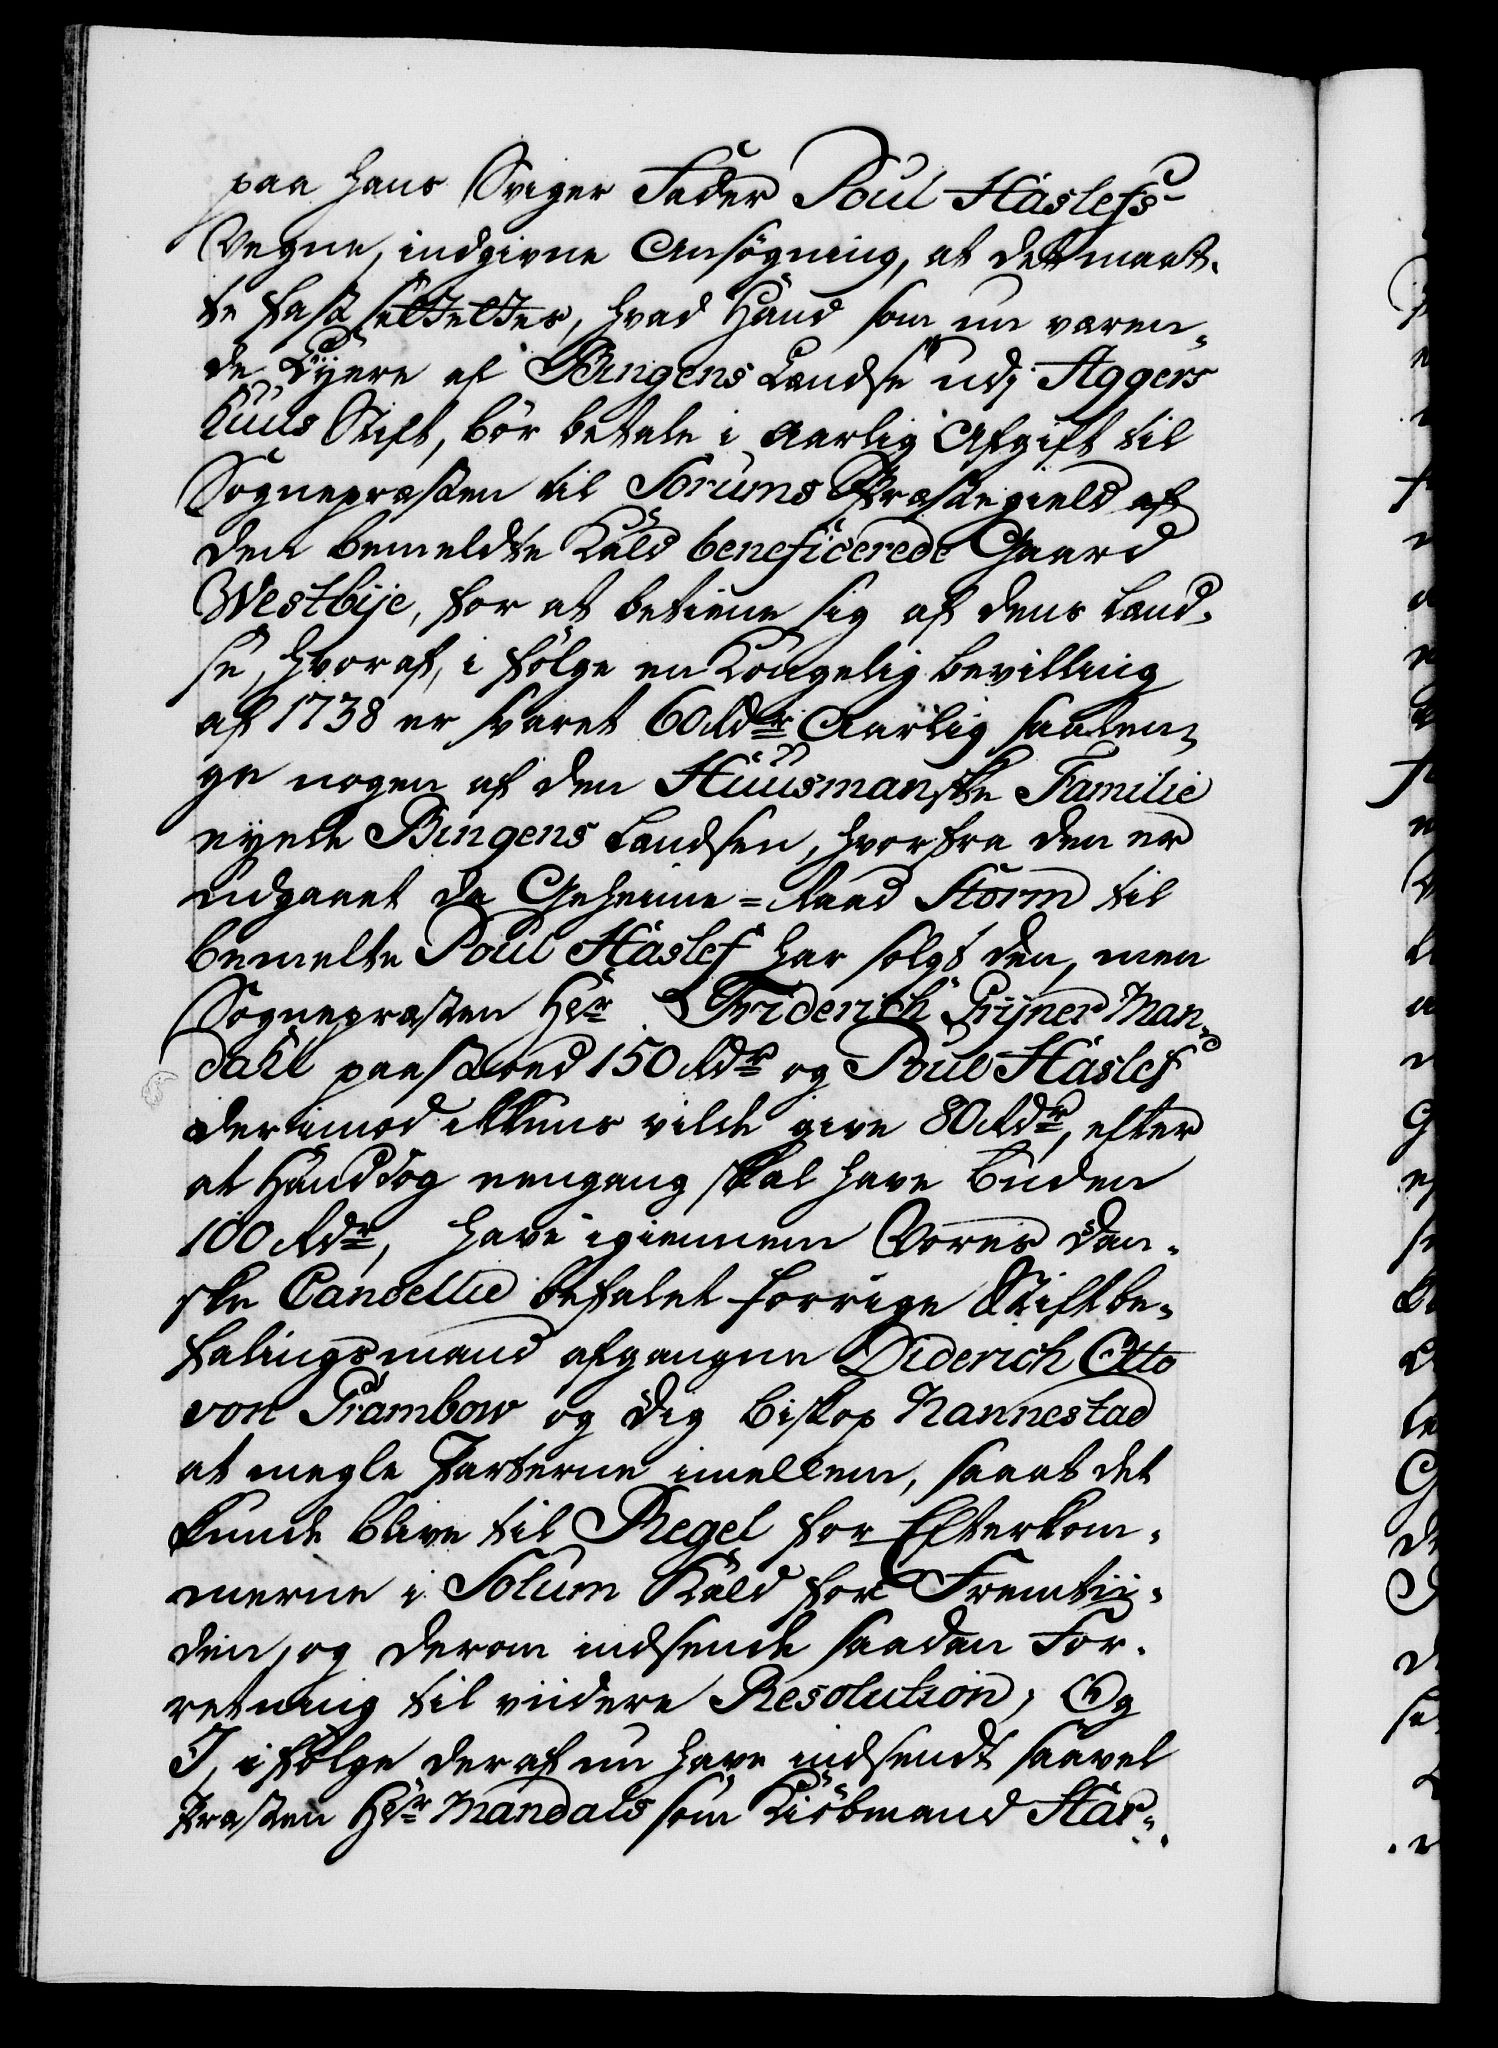 paa hans Sviger Fader Poul Haslefs
Vegne, indgivne Ansøgning, at det maat-
te fast settettes, hvad Hand som nu væren-
de Eyere af Bingens Landse udj Aggers
huus Stift, bør betale i aarlig Afgift til
Sognepræsten til Sørums Præstegield af
den bemeldte Kald beneficerede Gaard
Westbije, for at betiene sig af dens Land-
se, hvoraf, i følge en Kongelig bevilling
af 1738 er svaret 60 Rdr Aarlig saalen-
ge nogen af den Huusmanske Familie
eyede Bingens Landsen, hvorfra den er
udgaaet da Geheime=Raad Storm til
bemelte Poul Haslef har solgt den, men
Sognepræsten Hr Friderich Grijner Man-
dahl paastod 150 Rdr og Poul Haslef
derimod ikkuns vilde give 80 Rdr, efter
at Hand dog eengang skal have buden
100 Rdr, have igiennem Vores Dan-
ske Cancellie befalet forrige Stiftbe-
falingsmand afgangne Diderich Otto
von Grambow og dig Biskop Nannestad
at megle Parterne imellem, saa at det
kunde blive til Regel for Efterkom-
merne i Solum Kald for Fremtii-
den, og derom indsende saadan For-
retning til viidere Resolution; Og
I, i følge deraf nu have indsendt saavel
Præsten Hr Mandals som Kiøbmand Har-